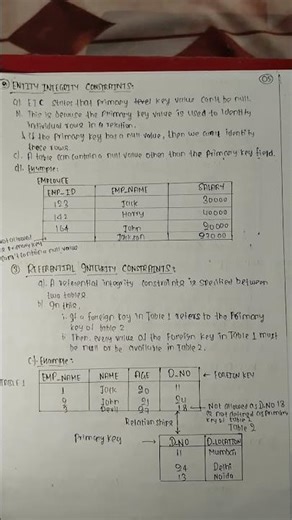 ② ENTITY INTEGRITY CONSTRAINTS:
a). E.I.C. states that primary level key value can't be null.
b). This is because the primary key value is used to identify
individual rows in a relation.
& if the primary key has a null value, then we can't identify
these rows.
c). A table can contain a null value other than the primary key field.
d). Example:
EMPLOYEE
EMP-ID EMP_NAME SALARY
123 Jack 30000
142 Harry 40000
164 John 20000
Johnson 27000
③ REFERENTIAL INTEGRITY CONSTRAINTS:
a). A referential integrity constraints is specified between
two tables
b) In this,
i. If a foreign key in Table 1 refers to the Primary
key of table 2
Then every value of the Foreign key in Table 1 must
be null or be available in Table 2.
c). Example:
TABLE 1
EMP_NAME NAME AGE D_NO ← FOREIGN KEY
1 Jack 20 11
John 21 24
Devil 27 18 → Not allowed as D.NO 18
is not defined as primary
key of table 2
Relationships
Table 2
Primary key → D_NO D_LOCATION
11 Mumbai
24 Delhi
13 Noida